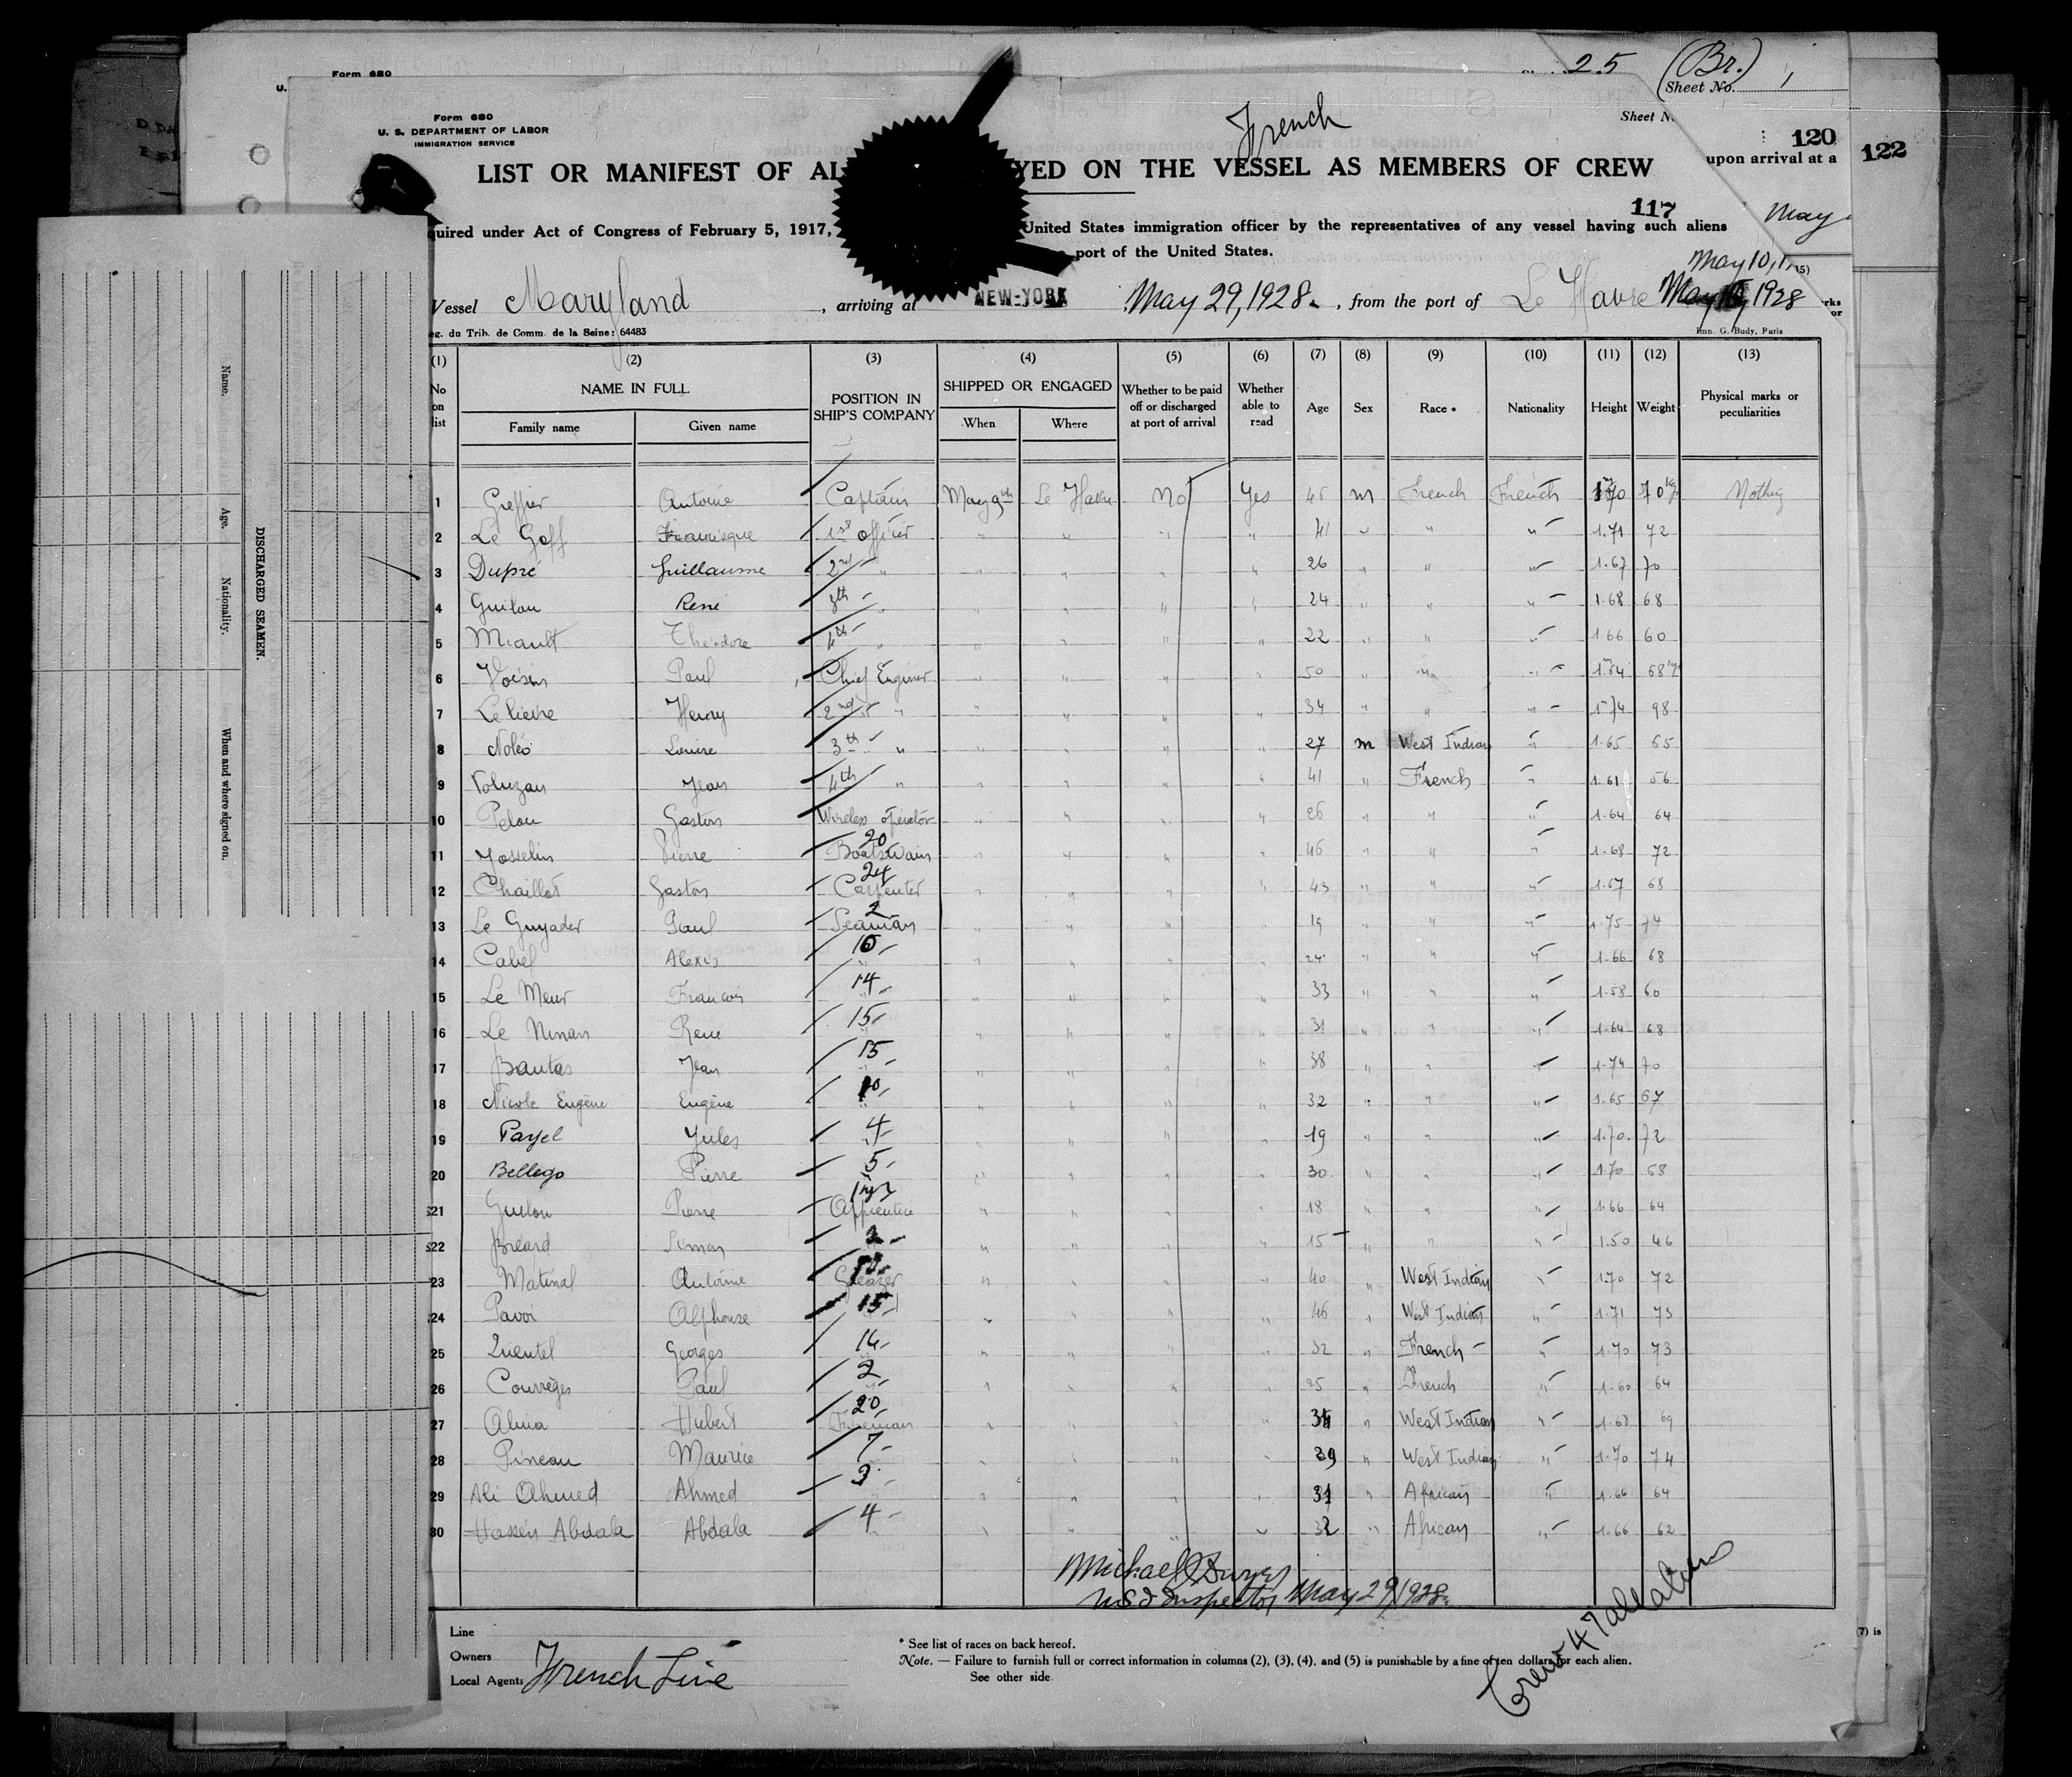 Form 680
U.
25 (Br.) 1
Sheet No.
Form 680
U. S. DEPARTMENT OF LABOR
IMMIGRATION SERVICE
French
Sheet N
120
122
LIST OR MANIFEST OF AL YED ON THE VESSEL AS MEMBERS OF CREW
upon arrival at a
117
May
quired under Act of Congress of February 5, 1917, United States immigration officer by the representatives of any vessel having such aliens
port of the United States.
May 10, 1
Vessel Maryland , arriving at NEW-YORK May 29, 1928. , from the port of Le Havre May 1928
eg. du Trib. de Comm. de la Seine: 64483
Imp. G. Budy, Paris
(1) (2) (3) (4) (5) (6) (7) (8) (9) (10) (11) (12) (13)
No on list NAME IN FULL POSITION IN SHIP'S COMPANY SHIPPED OR ENGAGED Whether to be paid off or discharged at port of arrival Whether able to read Age Sex Race * Nationality Height Weight Physical marks or peculiarities
Family name Given name When Where
1 Greffier Antoine Captain May 9th Le Havre No Yes 45 m French French 1m70 70kg Nothing
2 Le Goff Francisque 1st officer " " " " 41 " " " 1.71 72
3 Dupré Guillaume 2nd " " " " " 26 " " " 1.67 70
4 Guilou René 3th " " " " " 24 " " " 1.68 68
5 Miault Théodore 4th " " " " " 22 " " " 1.66 60
6 Voisin Paul Chief Enginer " " " " 50 " " " 1m64 68kg
7 Lelievre Henry 2nd " " " " " 34 " " " 1.74 98
8 Noléo 3th " " " " " 27 m West Indian " 1.65 65
9 Voluzan Jean 4th " " " " " 41 " French " 1.61 56
10 Pelou Gaston Wireless operator " " " " 26 " " " 1.64 64
11 Josselin Pierre 20 Boatswain " " " " 46 " " " 1.68 72
12 Chaillot Gaston 24 Carpenter " " " " 43 " " " 1.67 68
13 Le Guyader Paul 2 Seaman " " " " 19 " " " 1.75 74
14 Cabel Alexis 10 " " " " " 24 " " " 1.66 68
15 Le Meur François 14 " " " " " 33 " " " 1.58 60
16 Le Ninan René 15 " " " " " 31 " " " 1.64 68
17 Bautas Jean 15 " " " " " 38 " " " 1.74 70
18 Nicole Eugène Eugène 10 " " " " " 32 " " " 1.65 67
19 Payel Jules 4 " " " " " 19 " " " 1.70 72
20 Bellego Pierre 5 " " " " " 30 " " " 1.70 68
21 Guilou Pierre Apprentice " " " " 18 " " " 1.66 64
22 Bréard Simon " " " " 15 " " " 1.50 46
23 Matinal Antoine Greaser " " " " 40 " West Indian " 1.70 72
24 Pavoi Alphonse 15 " " " " " 46 " West Indian " 1.71 73
25 Quentel Georges 14 " " " " " 32 " French " 1.70 73
26 Courrèges Paul 2 " " " " " 25 " French " 1.60 64
27 Aluia Hubert 20 Fireman " " " " 34 " West Indian " 1.68 69
28 Pineau Maurice 7 " " " " " 39 " West Indian " 1.70 74
29 Ali Ahmed Ahmed 3 " " " " " 31 " African " 1.66 64
30 Hassen Abdala Abdala 4 " " " " " 32 " African " 1.66 62
Michael
US I Inspector May 29 1928
Line
Owners
Local Agents French Line
* See list of races on back hereof.
Note. — Failure to furnish full or correct information in columns (2), (3), (4), and (5) is punishable by a fine of ten dollars for each alien.
See other side
Crew 47 all aliens
7) is
Name.
Age.
Nationality.
When and where signed on.
DISCHARGED SEAMEN.